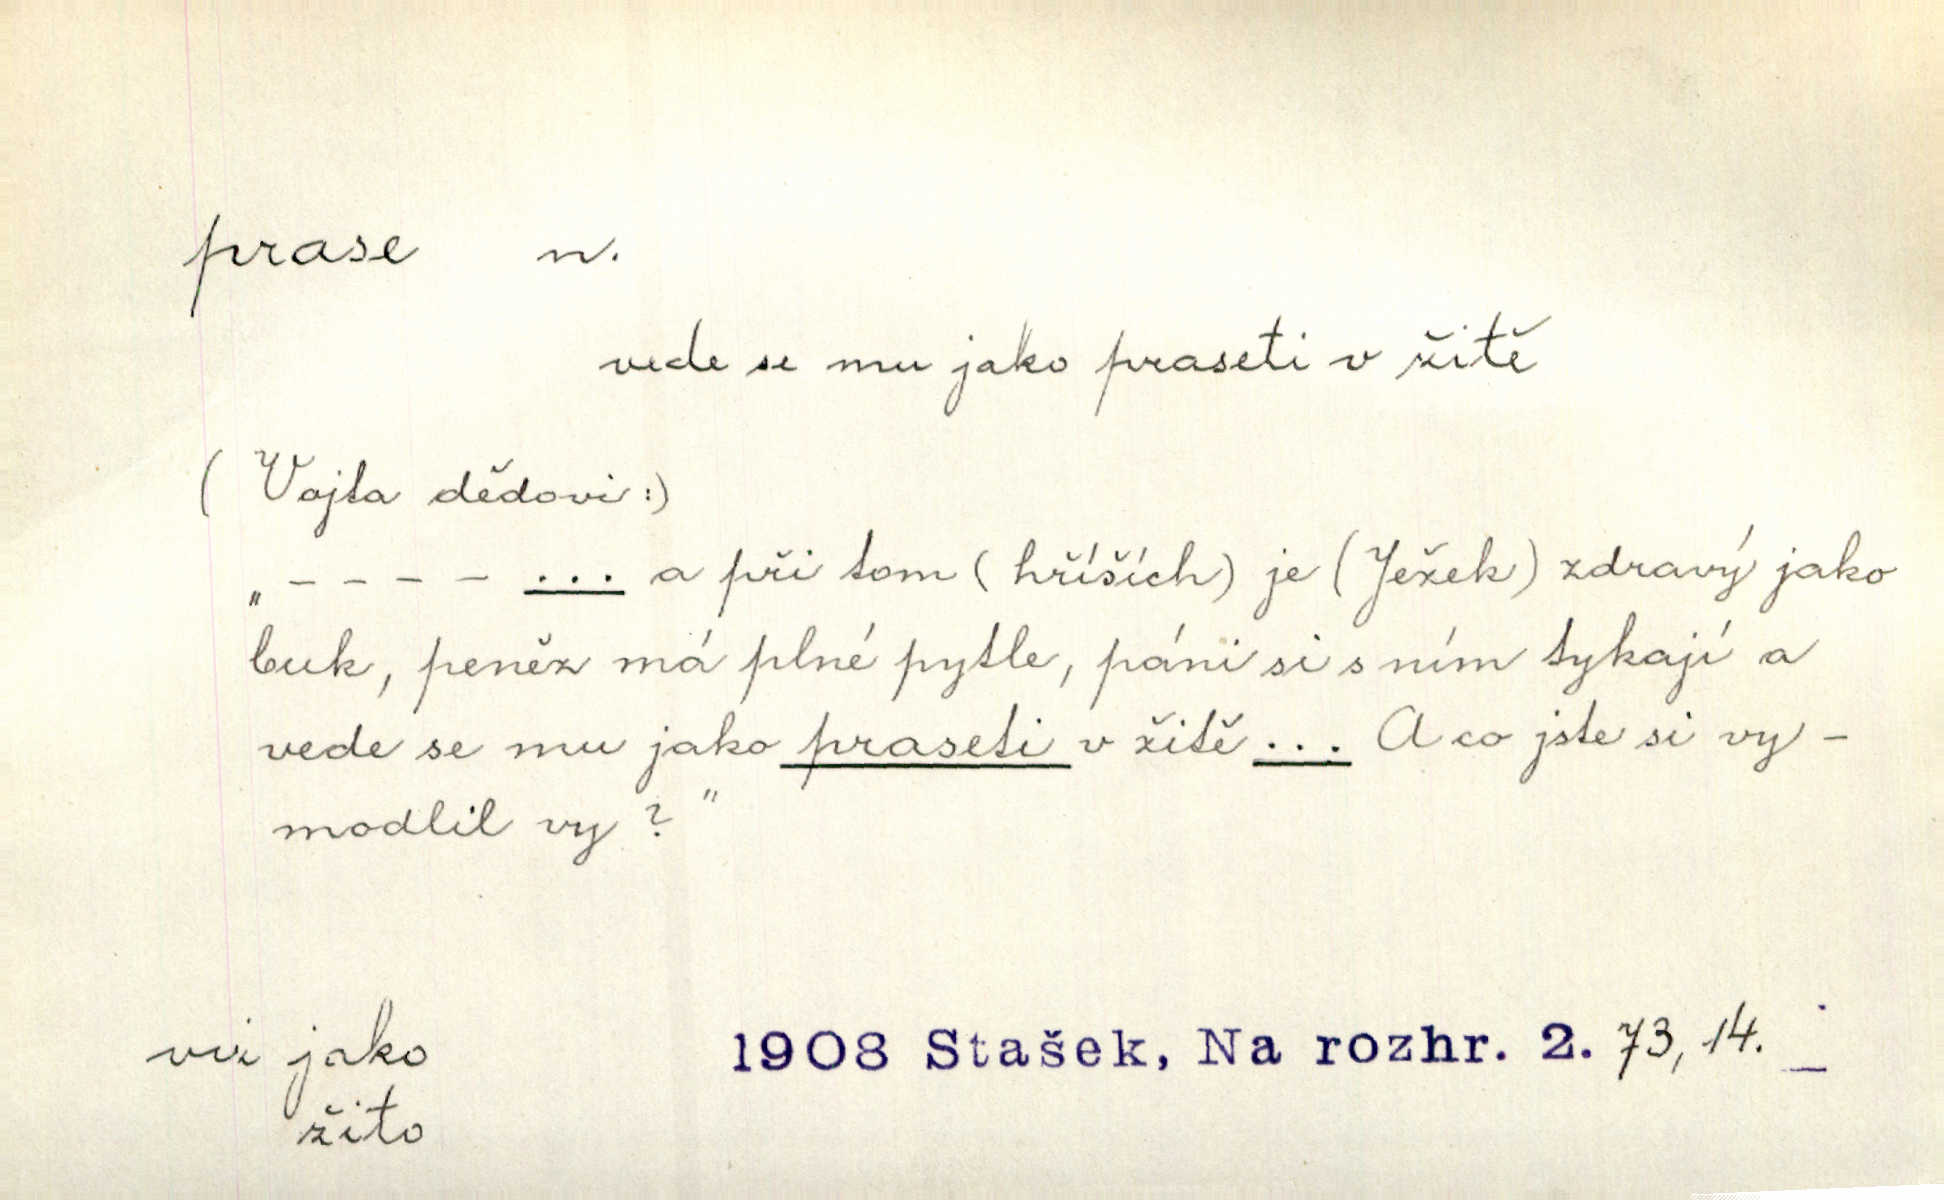 prase n.
vede se mu jako praseti v žitě
( Vojta dědovi:)
„ – – – – ... a při tom ( hříších) je (Ježek) zdravý jako
buk, peněz má plné pytle, páni si s ním tykají a
vede se mu jako praseti v žitě ... A co jste si vy –
modlil vy ? "
viz jako
žito
1908 Stašek, Na rozhr. 2. 73, 14.